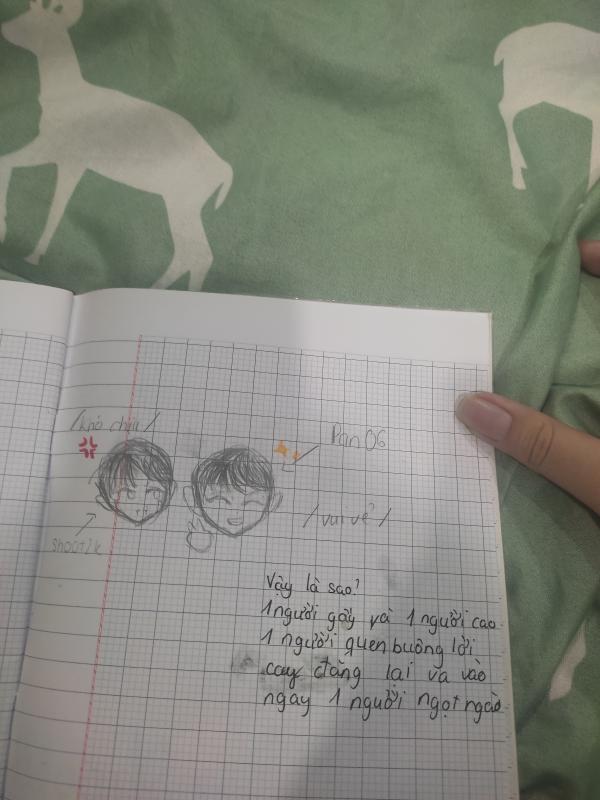 /khó chịu/
Pan06
/vui vẻ/
Vậy là sao?
1 người gầy và 1 người cao
1 người quen buông lời
cay đắng lại va vào
ngay 1 người ngọt ngào